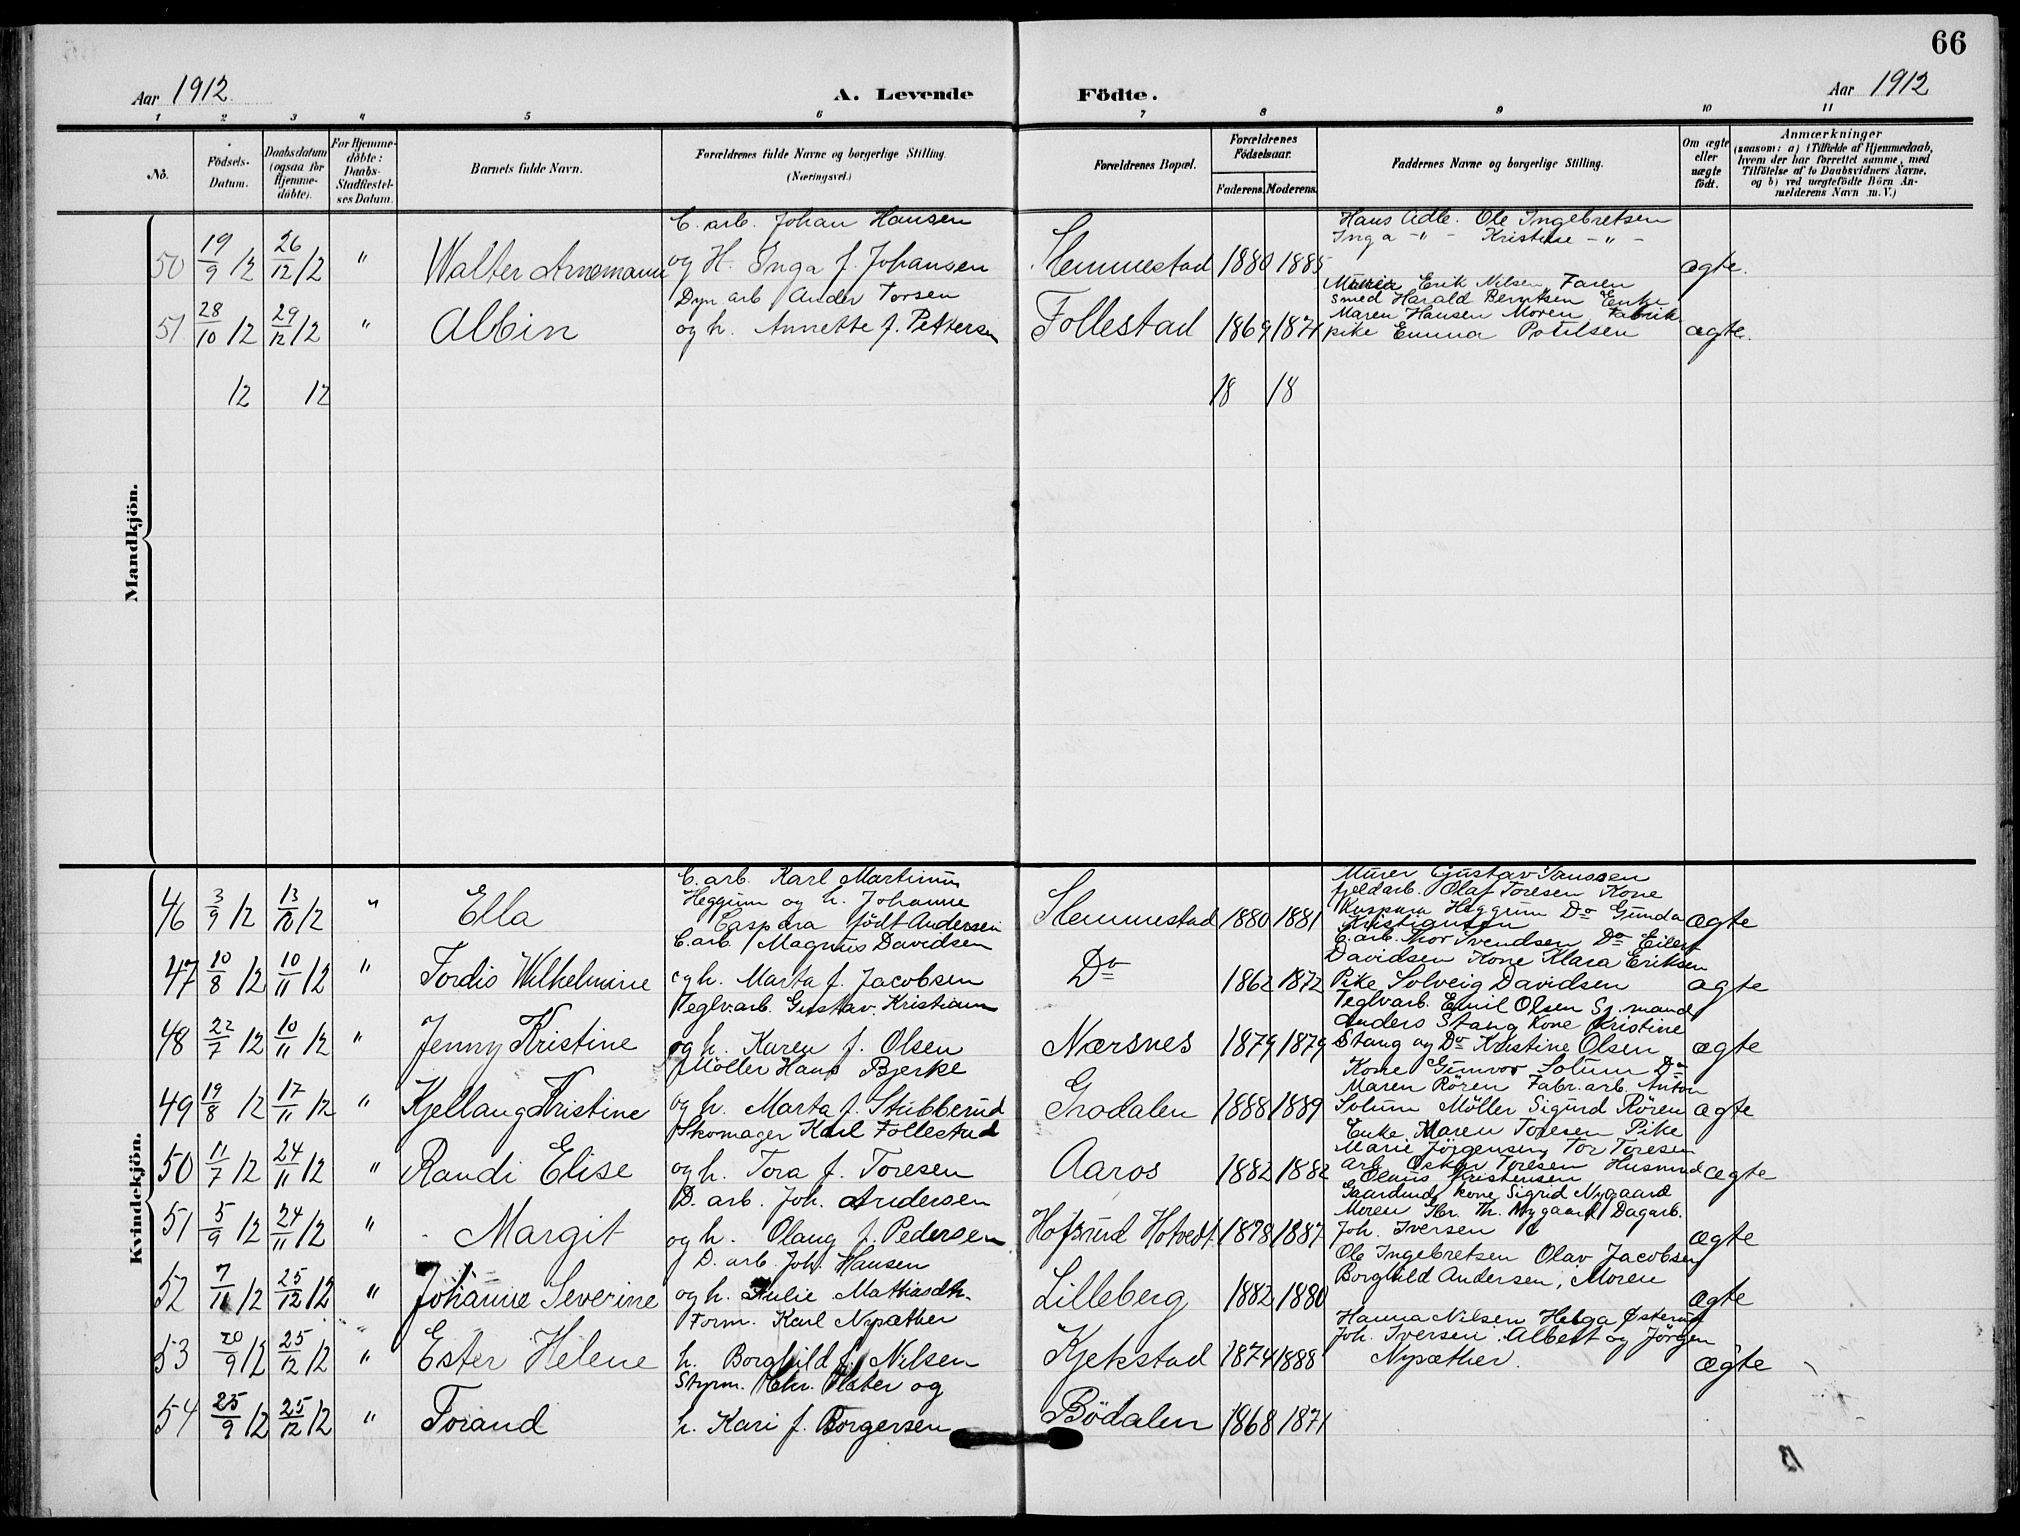 66
Aar 1912
A. Levende Födte.
Aar 1912
1 2 3 4 5 6 7 8 9 10 11
No.
Födsels-Datum.
Daabsdatum (ogsaa for Hjemme-döbte).
For Hjemme-döbte: Daabs-Stadfæstel-ses Datum.
Barnets fulde Navn.
Forældrenes fulde Navne og borgerlige Stilling. (Næringsvei.)
Forældrenes Bopæl.
Forældrenes Födselsaar.
Faderens. Moderens.
Faddernes Navne og borgerlige Stilling.
Om ægte eller uægte födt.
Anmærkninger (saasom: a) i Tilfælde af Hjemmedaab, hvem der har forrettet samme, med Tilföielse af to Daabsvidners Navne, og b) ved uægtefödte Börn An-melderens Navn m. V.)
Mandkjön.
C. arb. Johan Hansen Hans Adle. Ole Ingebretsen
Inga -"- Kristine -"-
50 19/9 12 26/12 12 " Walter Arnemann og H. Inga f. Johansen Slemmestad 1880 1885 ægte.
Dyn arb Ander Torsen Erik Nilsen, Faren
smed Harald Berntsen Enke
Maren Hansen Moren Fabrik
51 28/10 12 29/12 12 " Albin og h. Annette f. Pettersen Follestad 1869 1871 pike Emma ægte.
12 12 18 18
Kvindekjön.
C. arb. Karl Martinius Murer Gustav
Heggum og h. Johanne fjeldarb. Olaf Toresen Kone
46 3/9 12 13/10 12 " Ella Caspara födt Andersen Slemmestad 1880 1881 Kaspara Heggum Do Gunda Kristiansen ægte
C. arb. Magnus Davidsen C. arb. Thor Svendsen Do Eilert
Davidsen Kone Klara Eriksen
47 10/8 12 10/11 12 " Tordis Wilhelmine og h. Marta f. Jacobsen Do 1862 1872 Pike Solveig Davidsen ægte
Teglv.arb. Gustav Kristians Teglv.arb. Emil Olsen Sj. mand
Anders Stang Kone Kristine
48 22/7 12 10/11 12 " Jenny Kristine og h. Karen f. Olsen Nærsnes 1879 1879 Stang og Do Kristine Olsen ægte
Möller Hans Bjerke Kone Gunvor Solum Do
Maren Rören Fabr. arb. Anton
49 19/8 12 17/11 12 " Kjellaug Kristine og h. Marta f. Stubberud Grodalen 1888 1889 Solum Möller Sigurd Rören ægte
Skomager Karl Follestad Enke Maren Toresen Pike
Marie Jörgensen, Tor Toresen
50 11/7 12 24/11 12 " Randi Elise og h. Tora f. Toresen Aaros 1882 1882 arb. Oskar Toresen Husmnd ægte
Olaus Kristensen
D. arb. Joh. Andersen Gaardmd, kone Sigrid Nygaard
Moren Hr. Th. Nygaard, Dagarb.
51 5/9 12 24/11 12 " Margit og h. Olaug f. Pedersen Hofsrud Hotvedt. 1878 1887 Joh. Iversen ægte
D. arb. Joh. Hansen Ole Ingebretsen Olav Jacobsen
52 7/11 12 25/12 12 " Johanne Severine og h. Julie Mathiasdtr. Lilleberg 1882 1880 Borghild Andersen, Moren ægte
Form. Karl Nysæther Hanna Nilsen Helga Østerud
Joh. Iversen. Albert og Jörgen
53 20/9 12 25/12 12 " Ester Helene h. Borghild f. Nilsen Kjekstad 1874 1888 Nysæther. ægte
Styrm. Chr. Plater og
54 25/9 12 25/12 12 " Torand h. Kari f. Borgersen Bödalen 1868 1871